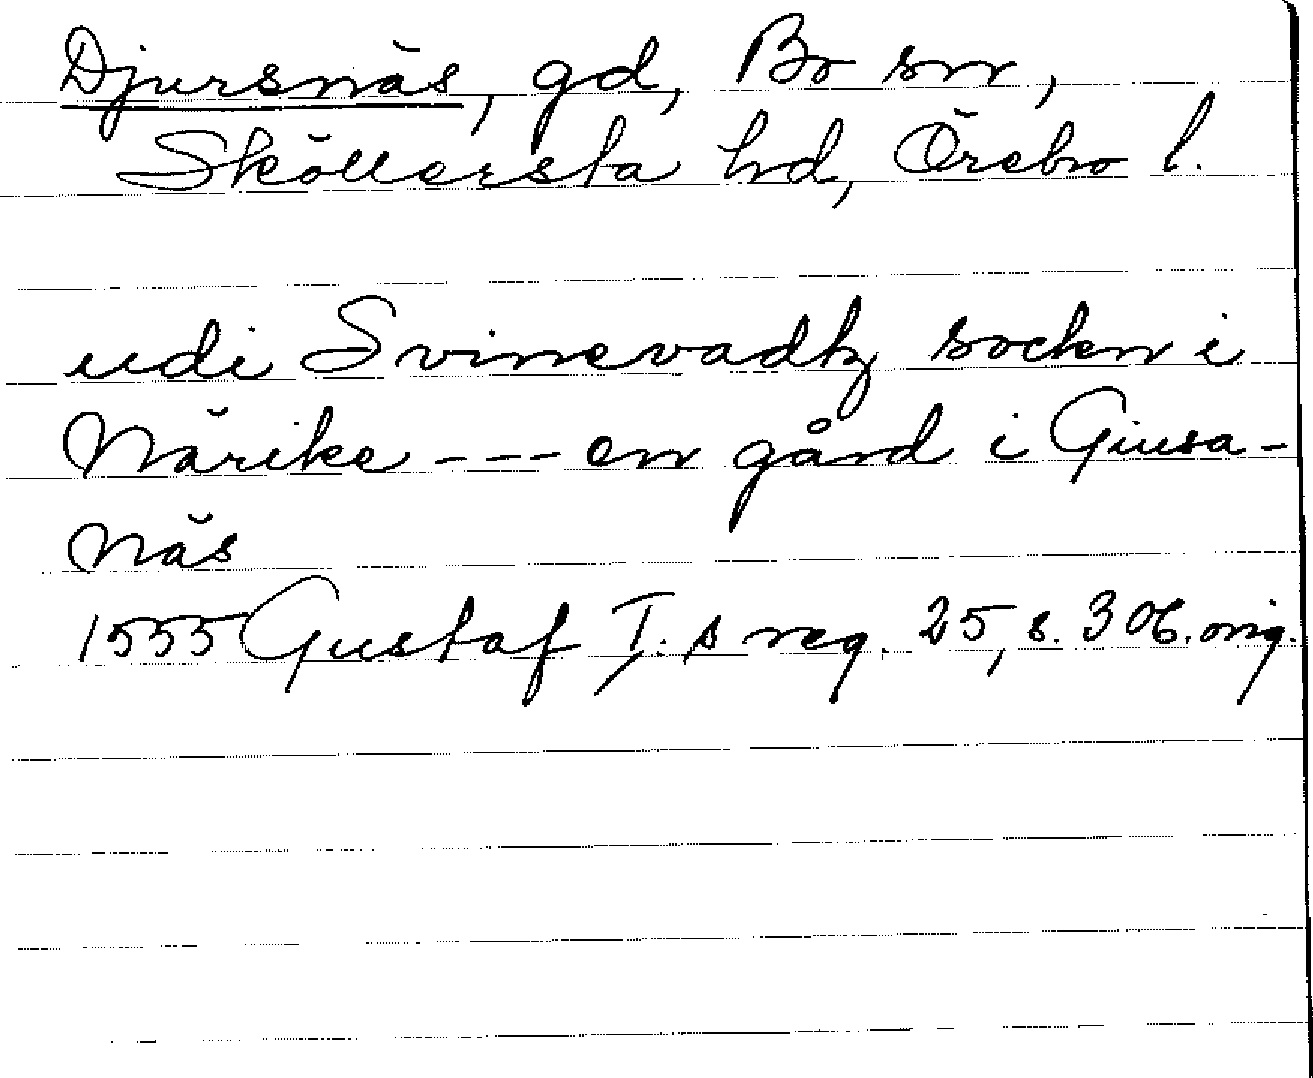 Djursnäs, gd, Bo sn,
Sköllersta hd, Örebro l.
udi Svinevadtz sockn i
Närike --- en gård i Giusa-
näs
1555 Gustaf I:s reg. 25, s. 306. orig.